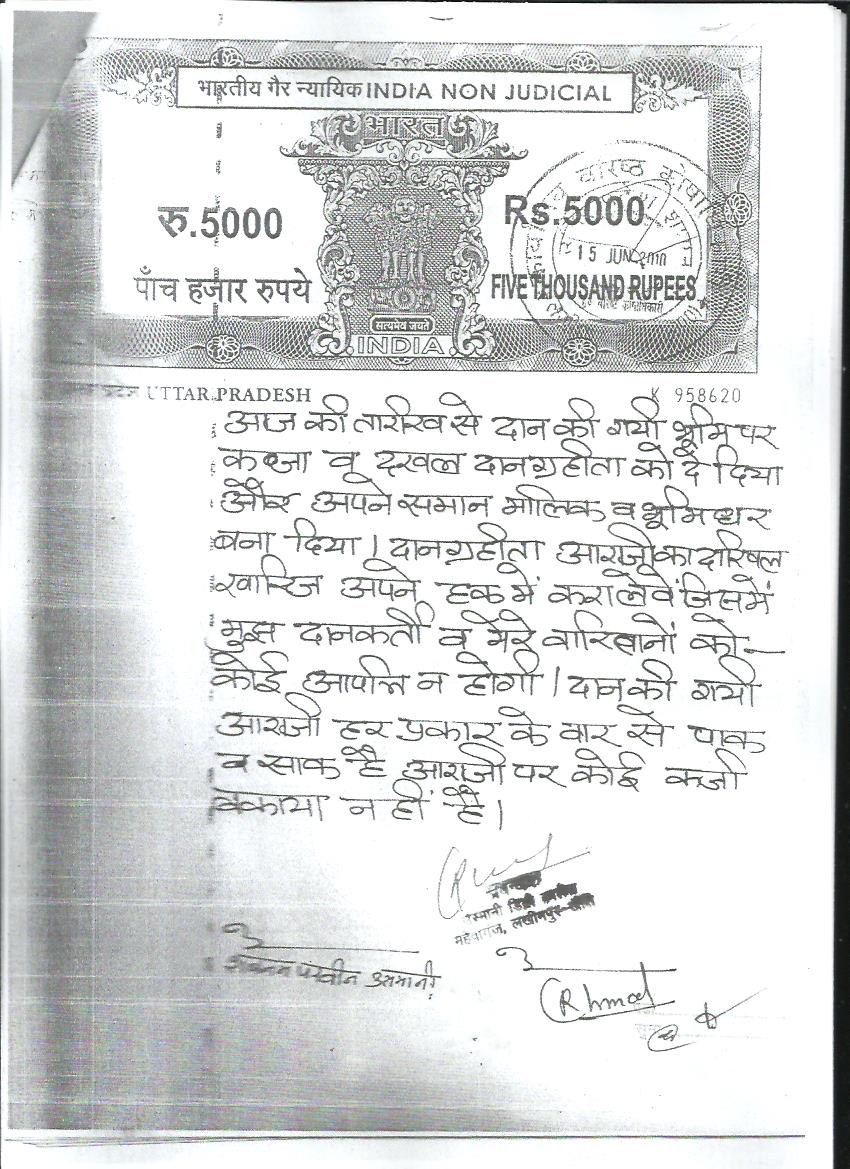 भारतीय गैर न्यायिक INDIA NON JUDICIAL
भारत
रु.5000
Rs.5000
15 JUN 2010
पाँच हजार रुपये
FIVE THOUSAND RUPEES
सत्यमेव जयते
INDIA
UTTAR PRADESH
K 958620
आज की तारीख से दान की गयी भूमि पर
कब्जा व दखल दानग्रहीता को दे दिया
और अपने समान मालिक व भूमिधर
बना दिया। दानग्रहीता आराजी का दाखिल
खारिज अपने हक में करा लेवें जिसमें
मुझ दानकर्ता व मेरे वारिसानों को
कोई आपत्ति न होगी। दान की गयी
आराजी हर प्रकार के वार से पाक
व साफ है आराजी पर कोई कर्जा
बकाया नहीं है।
उस्मानी डिग्री कालेज
महेवागंज, लखीमपुर-खीरी
शबनम परवीन उसमानी